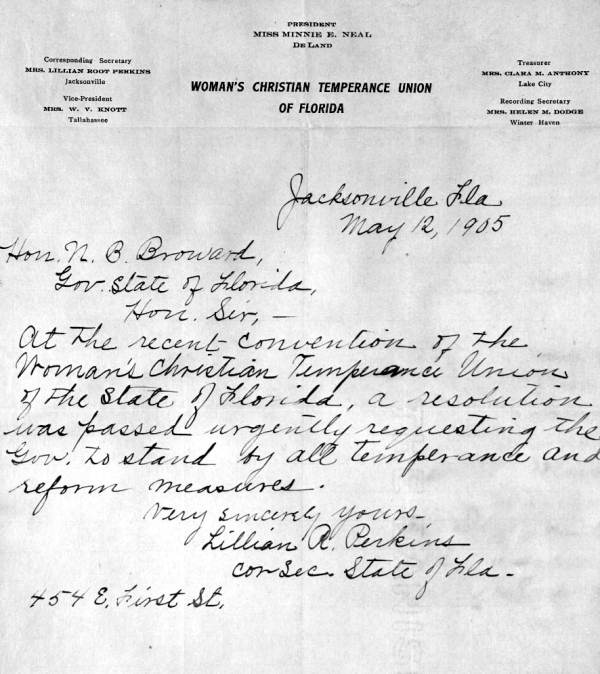 PRESIDENT
MISS MINNIE E. NEAL
DE LAND
Corresponding Secretary
MRS. LILLIAN ROOT PERKINS
Jacksonville
Vice-President
MRS. W. V. KNOTT
Tallahassee
WOMAN'S CHRISTIAN TEMPERANCE UNION
OF FLORIDA
Treasurer
MRS. CLARA M. ANTHONY
Lake City
Recording Secretary
MRS. HELEN M. DODGE
Winter Haven
Jacksonville Fla
May 12, 1905
Hon. N. B. Broward,
Gov. State of Florida,
Hon. Sir, —
At the recent convention of the
Woman's Christian Temperance Union
of the State of Florida, a resolution
was passed urgently requesting the
Gov. to stand by all temperance and
reform measures.
Very sincerely yours-
Lillian R. Perkins
Cor Sec. State of Fla-
454 E. First St.